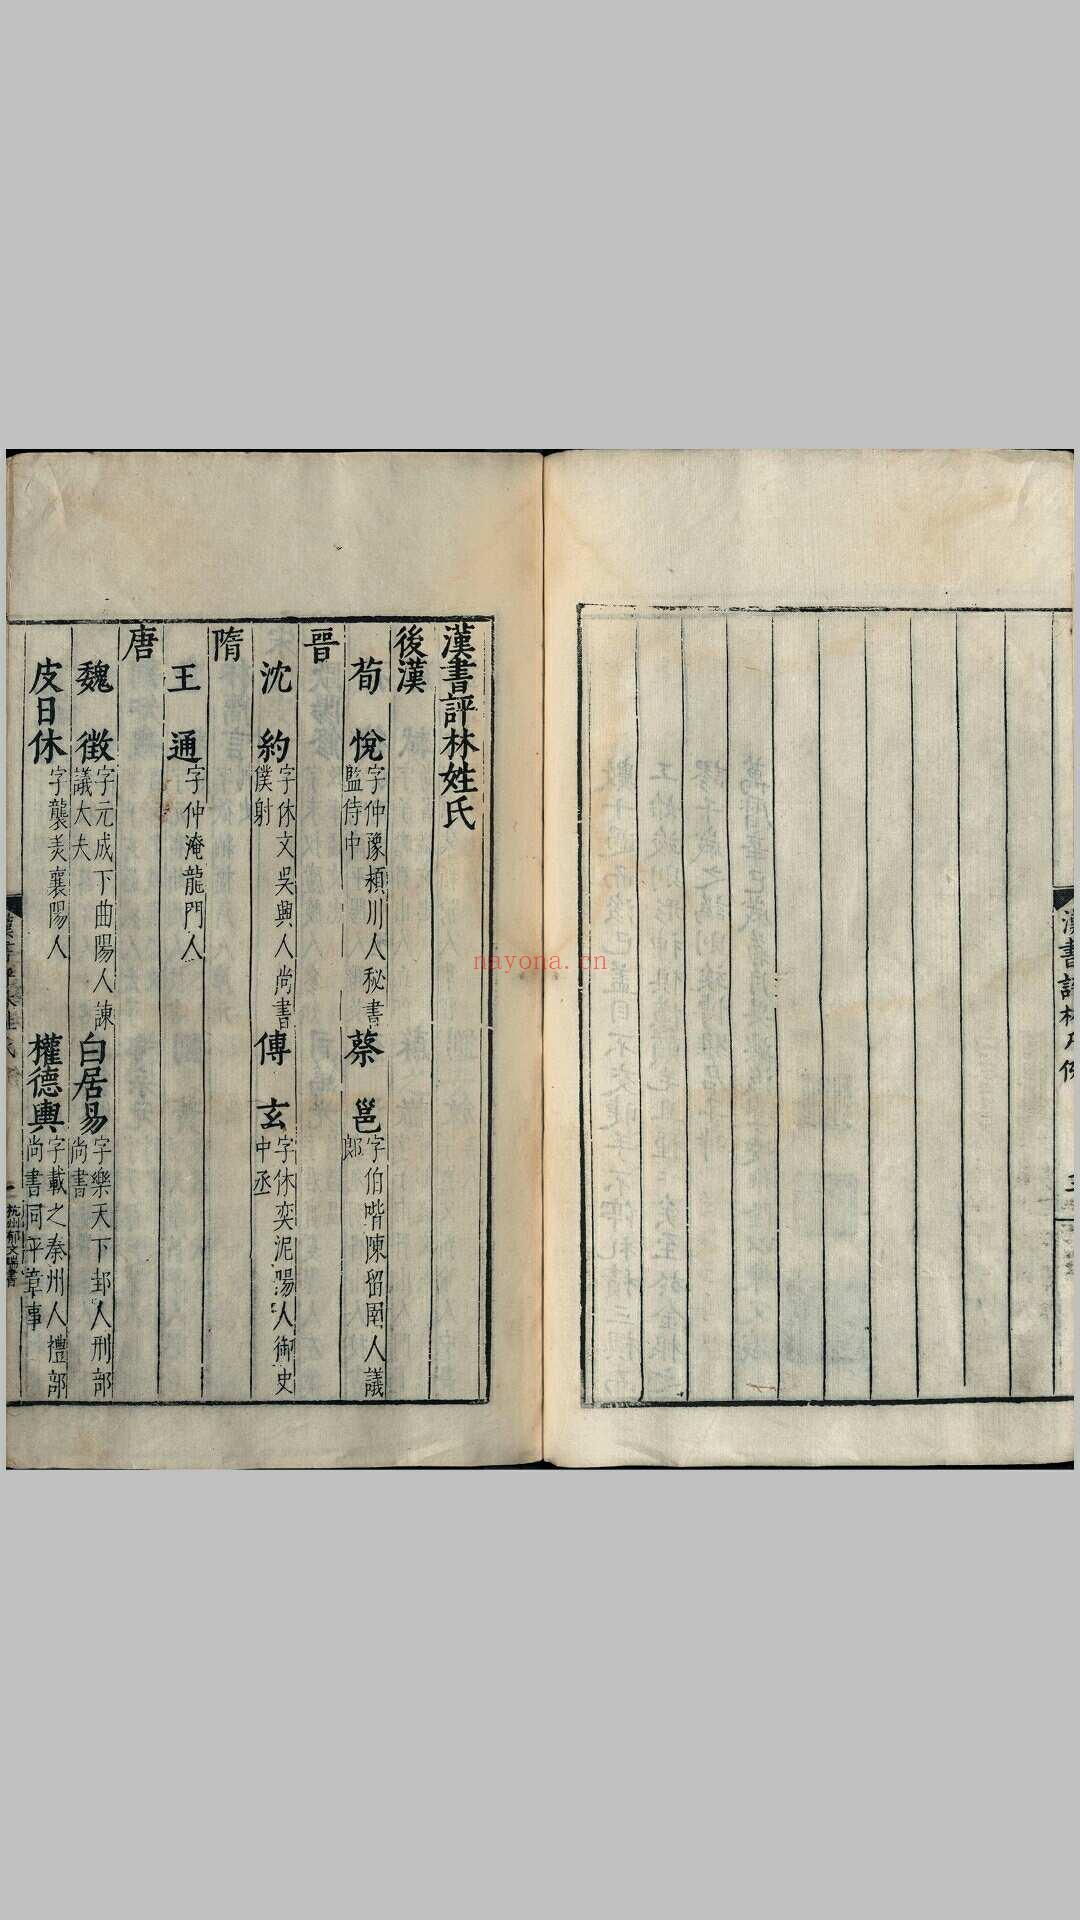 漢書評林凡例
漢書評林姓氏
後漢
荀悅 字仲豫潁川人秘書監侍中
蔡邕 字伯喈陳留圉人議郎
晉
沈約 字休文吳興人尚書僕射
傅玄 字休奕泥陽人御史中丞
隋
王通 字仲淹龍門人
唐
魏徵 字元成下曲陽人諫議大夫
白居易 字樂天下邽人刑部尚書
皮日休 字襲美襄陽人
權德輿 字載之秦州人禮部尚書同平章事
漢書評林姓氏
一
杭州郁文瑞書
nayona.cn